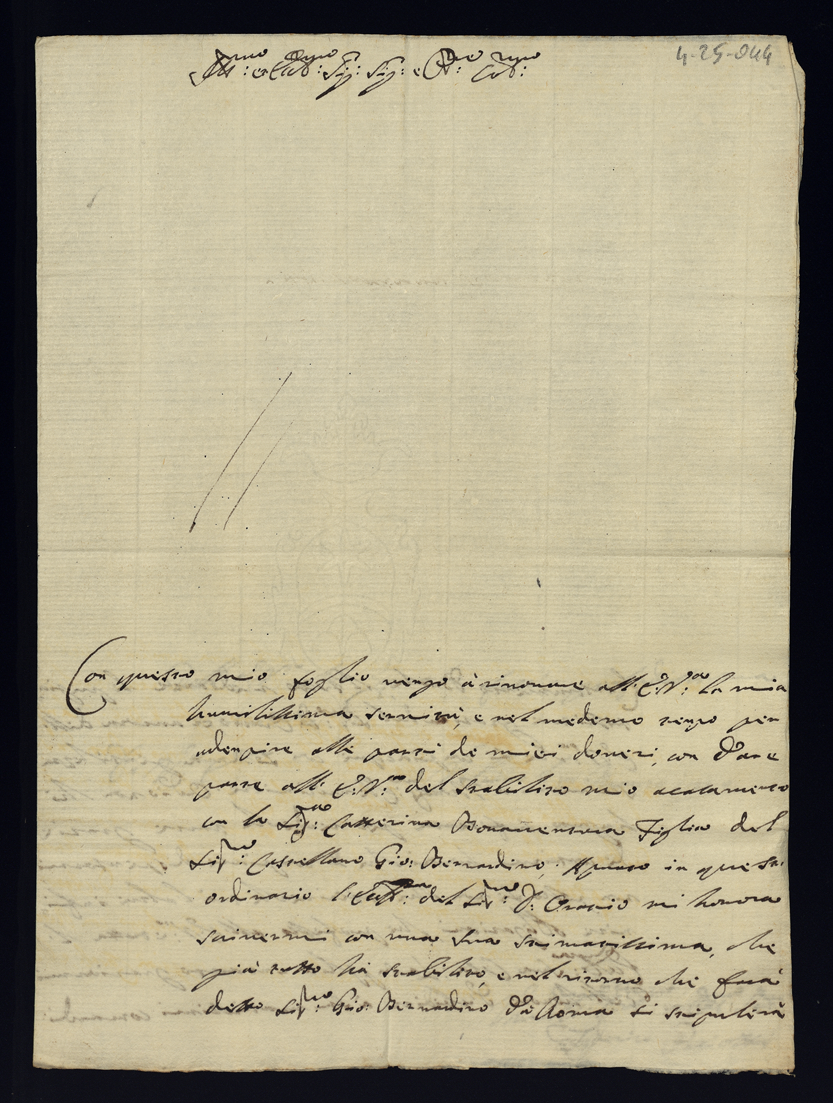 4-25-044
Ill:mo et Ecc:mo Sig: Sig: e P:ne mio Col:mo
Con questo mio foglio vengo à rinovare all' E: V:ra la mia
humilissima servitù, e nel medemo tempo per
adempire alle parti de miei doveri, con dare
parte all' E: V:ra del stabilito mio acasamento
con la Sig:ra Catterina Bonaventura Figlia del
Sig:re Castellano Gio: Bernardino; in questo
ordinario l'Ecc:mo del Sig:re D: Oratio mi honora
scrivermi con una sua stimatissima, che
già tutto hà stabilito, e nel ritorno che farà
detto Sig:re Gio: Bernardino da Roma si stipulerà